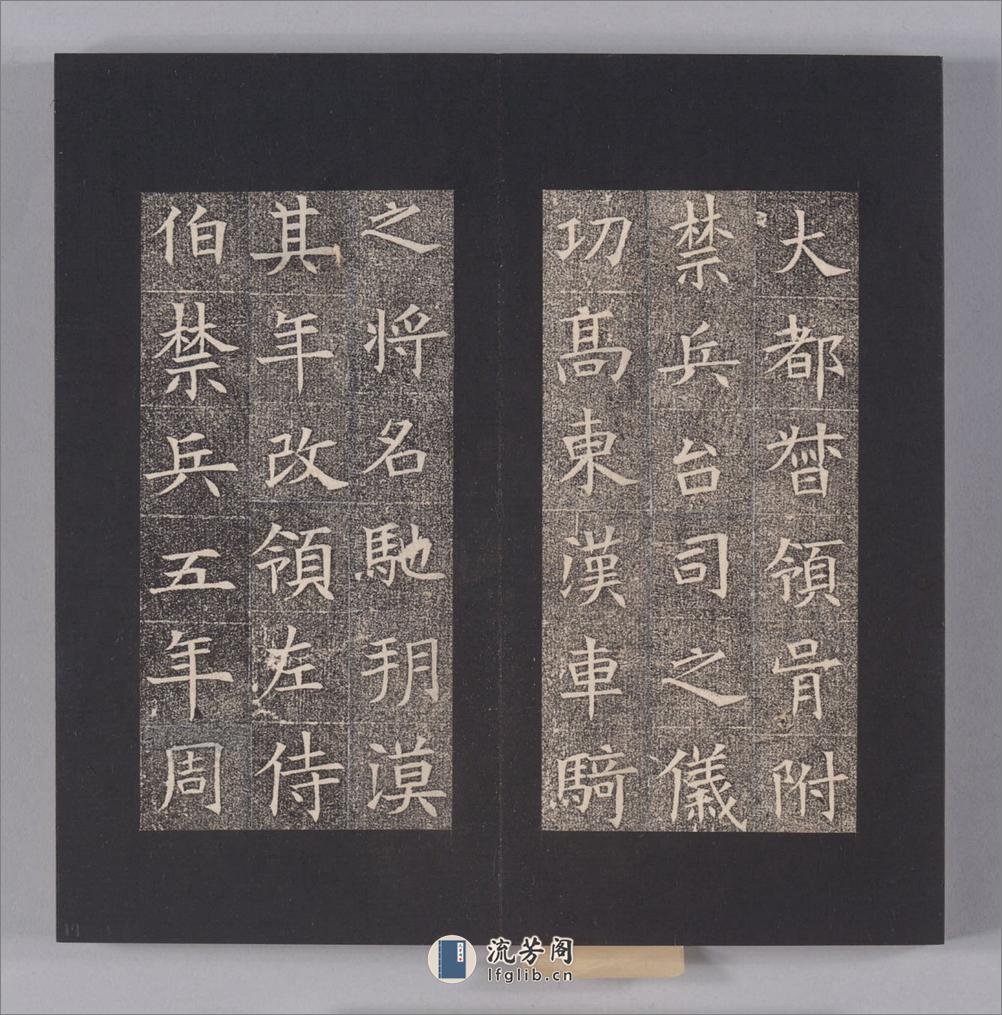 大都督領胥附
禁兵台司之儀
功高東漢車騎
之將名馳朔漠
其年改領左侍
伯禁兵五年周
流芳阁
lfglib.cn